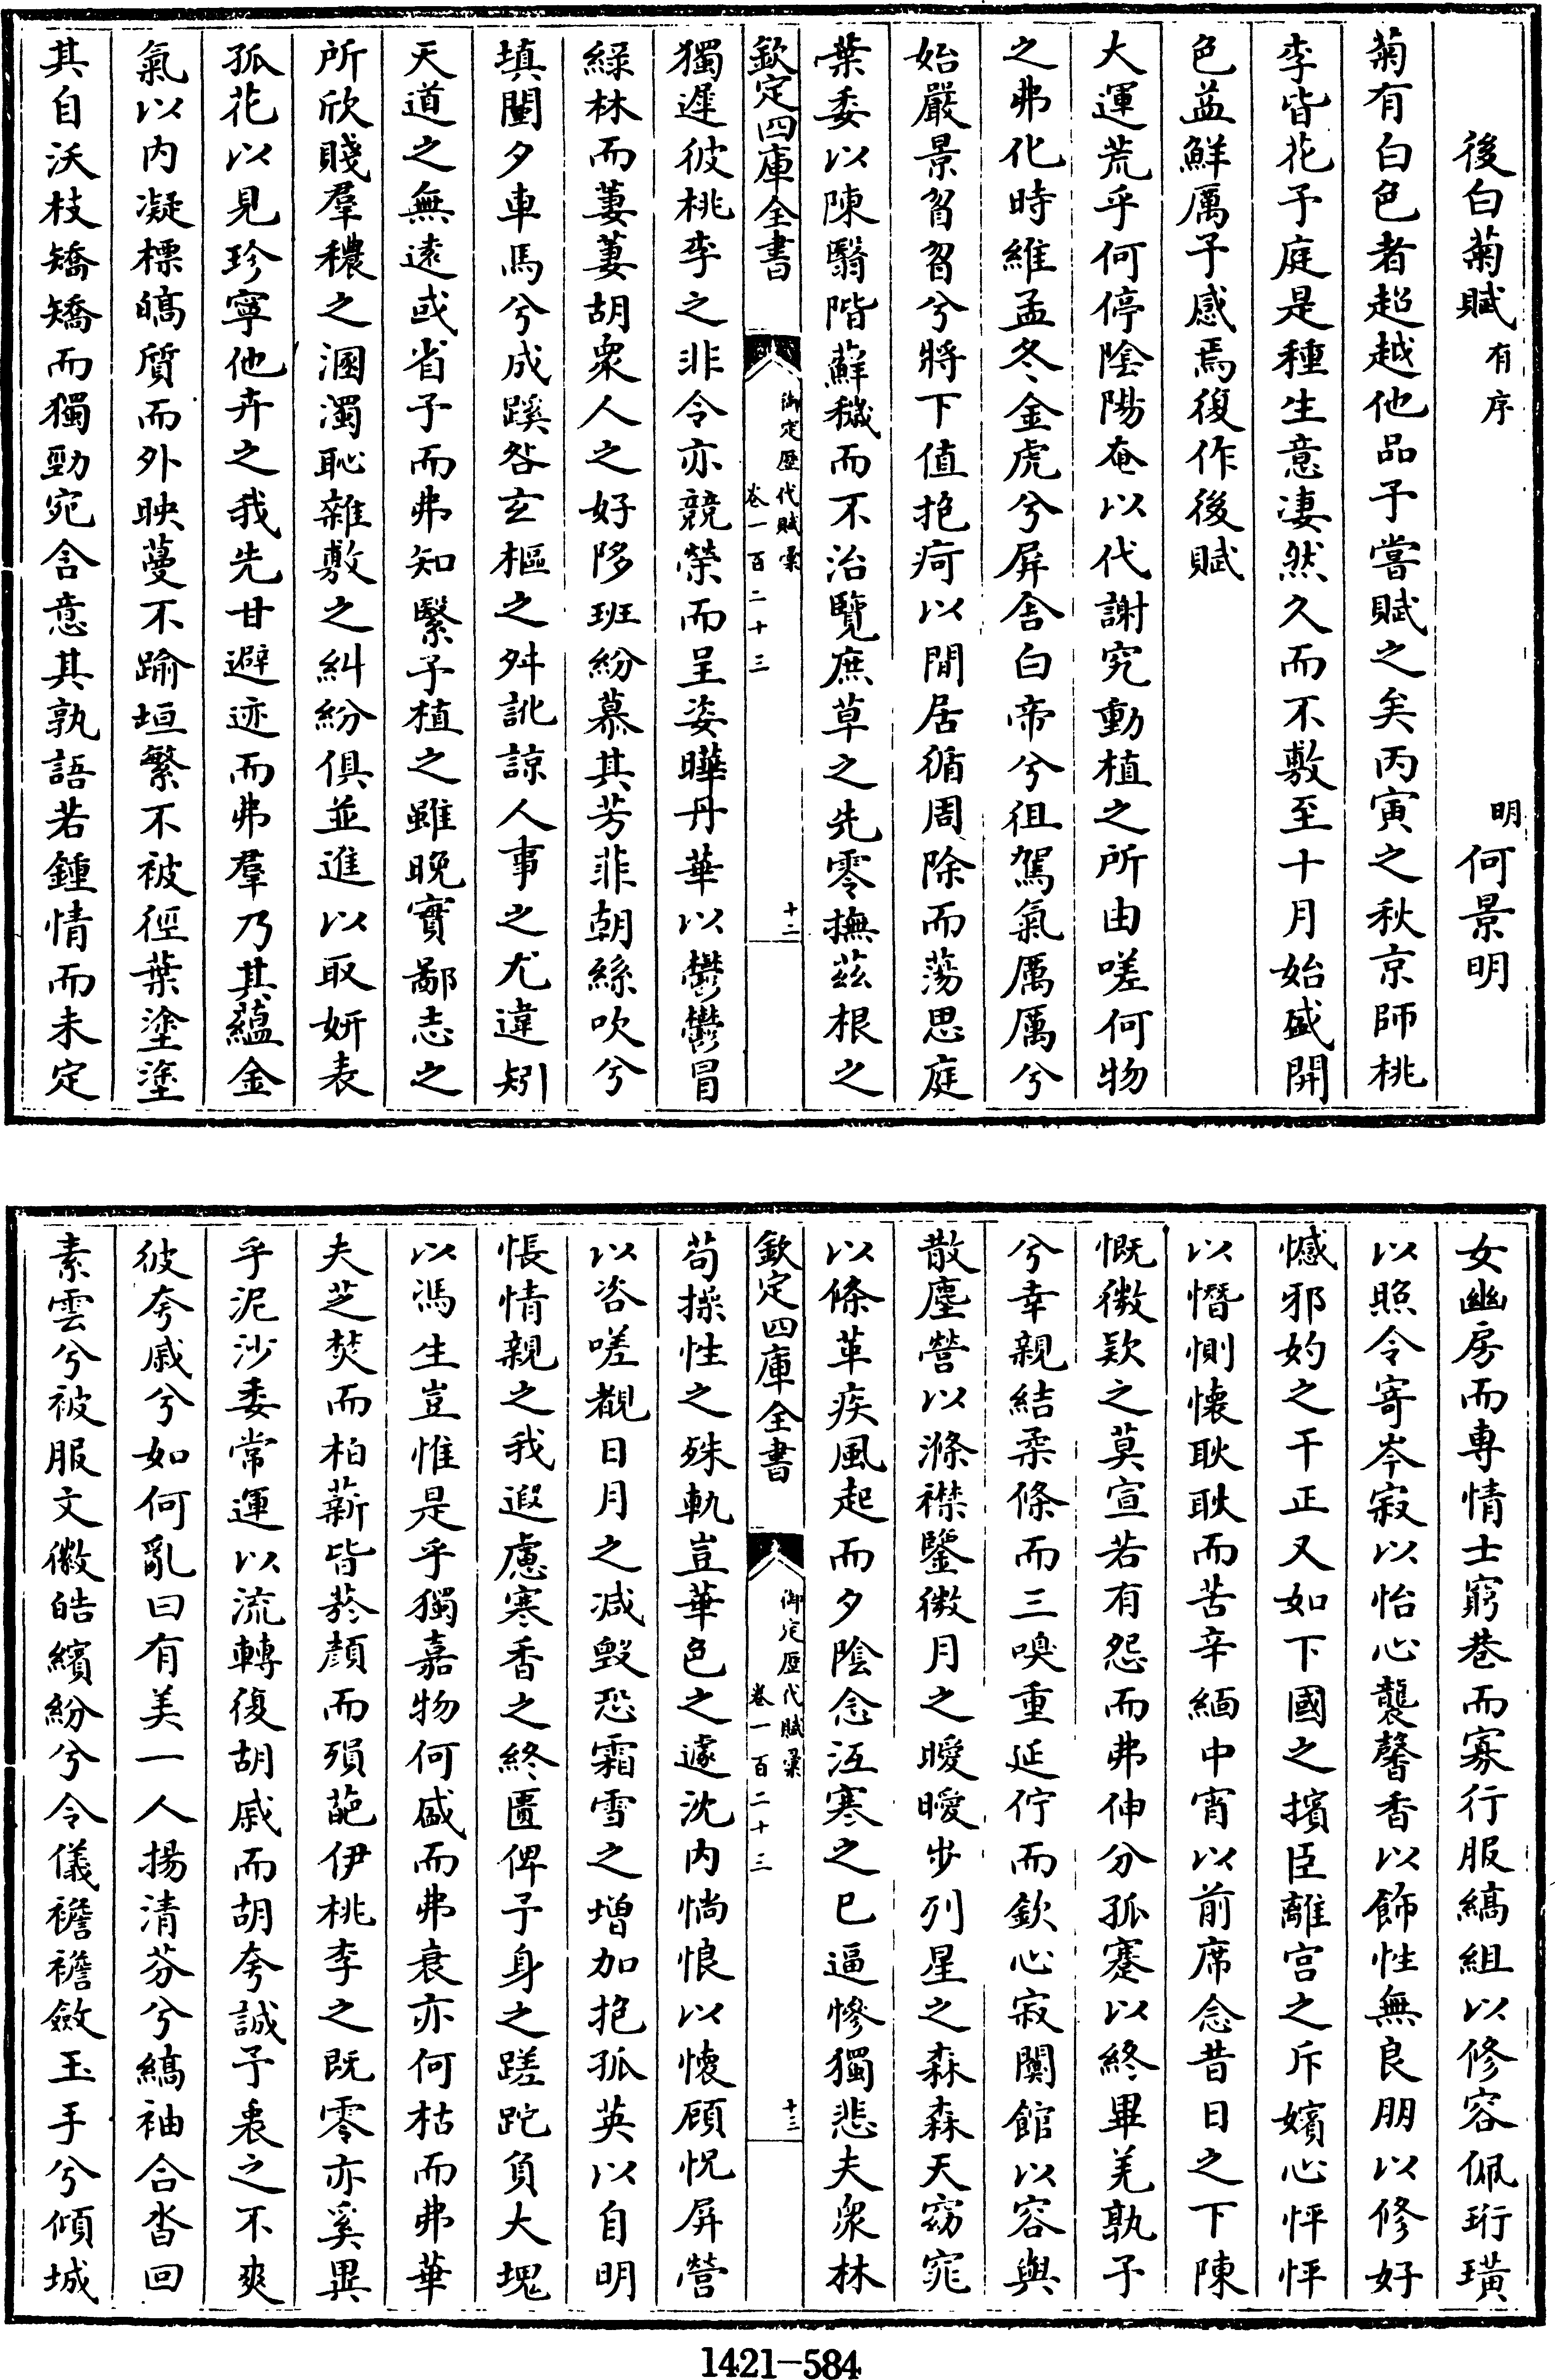 後白菊賦有序 明何景明
菊有白色者超越他品予嘗賦之矣丙寅之秋京師桃
李皆花予庭是種生意凄然久而不敷至十月始盛開
色益鮮厲予感焉復作後賦
大運荒乎何停陰陽奄以代謝究動植之所由嗟何物
之弗化時維孟冬金虎兮屏舍白帝兮徂駕氣厲厲兮
始嚴景習習兮將下值抱疴以閒居循周除而蕩思庭
葉委以陳翳階蘚穢而不治覽庶草之先零撫茲根之
欽定四庫全書 御定歷代賦彙 卷一百二十三 十二
獨遲彼桃李之非令亦競榮而呈姿曄丹華以鬱鬱冒
綠林而萋萋胡衆人之好陊班紛慕其芳菲朝絲吹兮
填闉夕車馬兮成蹊咎玄樞之舛訛諒人事之尤違矧
天道之無遠或省予而弗知繄予植之雖晚實鄙志之
所欣賤羣穠之溷濁恥雜敷之糾紛俱並進以取妍表
孤花以見珍寧他卉之我先甘避迹而弗羣乃其蘊金
氣以内凝標皜質而外映蔓不踰垣繁不被徑葉塗塗
其自沃枝矯矯而獨勁宛含意其孰語若鍾情而未定
女幽房而專情士窮巷而寡行服縞組以修容佩珩璜
以照令寄岑寂以怡心襲馨香以飾性無良朋以修好
憾邪妁之干正又如下國之擯臣離宫之斥嬪心怦怦
以憯惻懷耿耿而苦辛緬中宵以前席念昔日之下陳
慨微欵之莫宣若有怨而弗伸分孤蹇以終畢羌孰予
兮幸親結柔條而三嗅重延佇而欽心寂闃館以容與
散塵營以滌襟鑒微月之曖曖步列星之森森天窈窕
以條革疾風起而夕陰念沍寒之已逼慘獨悲夫衆林
欽定四庫全書 御定歷代賦彙 卷一百二十三 十三
苟操性之殊軌豈華色之遽沈内惝悢以懷顧怳屏營
以咨嗟覩日月之減毁恐霜雪之增加抱孤英以自明
悵情親之我遐慮寒香之終匱俾予身之蹉跎負大塊
以馮生豈惟是乎獨嘉物何盛而弗衰亦何枯而弗華
夫芝焚而柏薪皆菸顔而殞葩伊桃李之既零亦奚異
乎泥沙委常運以流轉復胡戚而胡夸誠予衷之不爽
彼夸戚兮如何亂曰有美一人揚清芬兮縞袖合沓回
素雲兮被服文徽皓繽紛兮令儀襜襜斂玉手兮傾城
1421-584